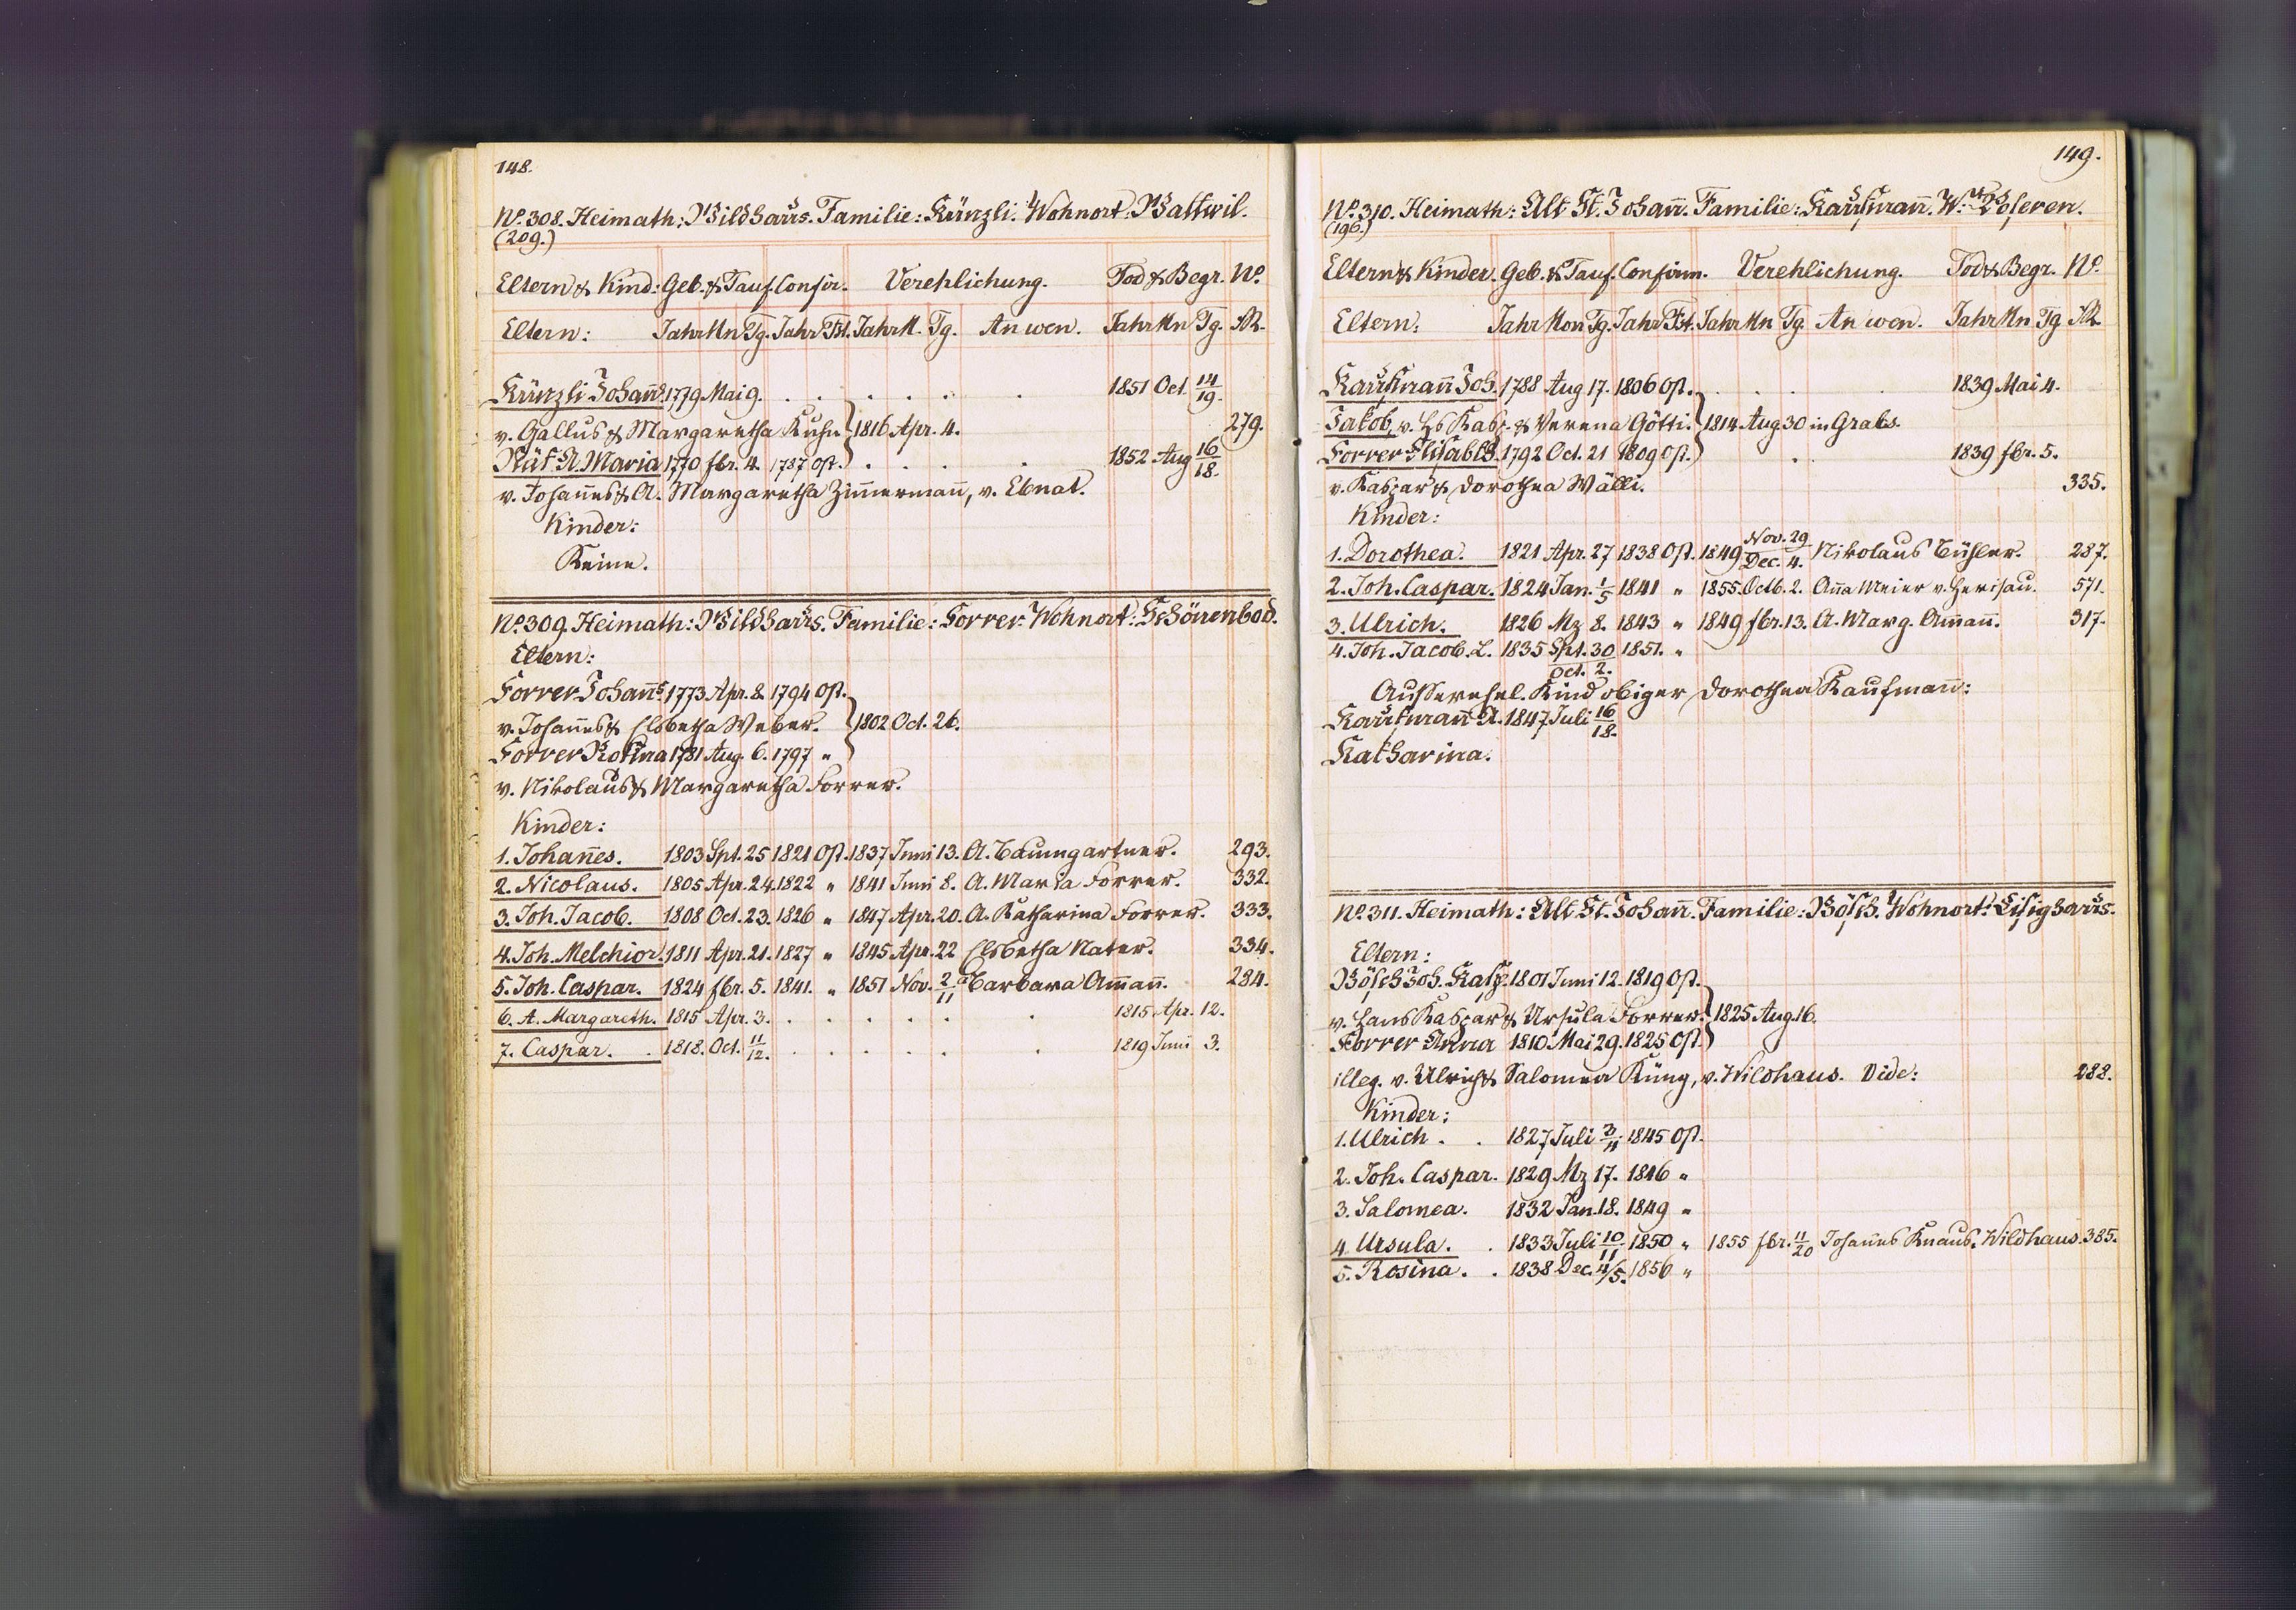 148.
No. 308. Heimath: Wildhaus. Familie: Künzli. Wohnort: Wattwil.
(209.)
Eltern & Kind: Geb. & Tauf. Confir. Verehlichung. Tod & Begr. No.
Eltern: Jahr Mn Tg. Jahr Fst. Jahr M. Tg. An wen. Jahr Mn Tg.
Künzli Johañs 1779 Mai 9. . . . . . . 1851 Oct. 14/19.
v. Gallus & Margaretha Kuhn } 1816 Apr. 4. 279.
Näf A. Maria 1770 fbr. 4. 1787 Ost. . . . . 1852 Aug 16/18.
v. Johañes & A. Margaretha Zim̃ermañ, v. Ebnat.
Kinder:
Keine.
No. 309. Heimath: Wildhaus. Familie: Forrer. Wohnort: Schönenbod.
Eltern:
Forrer Johañs 1773 Apr. 8. 1794 Ost.
v. Johañes & Elsbetha Weber. } 1802 Oct. 26.
Forrer Rosina 1781 Aug. 6. 1797 "
v. Nikolaus & Margaretha Forrer.
Kinder:
1. Johañes. 1803 Spt. 25 1821 Ost. 1837 Juni 13. A. Baumgartner. 293.
2. Nicolaus. 1805 Apr. 24. 1822 " 1841 Juni 8. A. Maria Forrer. 332.
3. Joh. Jacob. 1808 Oct. 23. 1826 " 1847 Apr. 20. A. Katharina Forrer. 333.
4. Joh. Melchior. 1811 Apr. 21. 1827 " 1845 Apr. 22 Elsbetha Nater. 334.
5. Joh. Caspar. 1824 fbr. 5. 1841. " 1851 Nov. 2/11 Barbara Am̃añ. 284.
6. A. Margareth. 1815 Apr. 3. . . . . . . 1815 Apr. 12.
7. Caspar. . 1818. Oct. 11/12. . . . . . . 1819 Juni 3.
149.
No. 310. Heimath: Alt St. Johañ. Familie: Kaufmañ. W:
(196.)
Eltern & Kinder. Geb. & Tauf. Confirm. Verehlichung. Tod & Begr. No.
Eltern: Jahr Mon Tg. Jahr Fst. Jahr Mn Tg. An wen. Jahr Mn Tg
Kaufmañ Joh. 1788 Aug 17. 1806 Ost. . . . . 1839 Mai 4.
Jakob, v. Hs Kasp. & Verena Götti. } 1814 Aug 30 in Grabs.
Forrer Elisabth. 1792 Oct. 21 1809 Ost. . 1839 fbr. 5.
v. Kaspar & Dorothea Wälli. 335.
Kinder:
1. Dorothea. 1821 Apr. 27 1838 Ost. 1849 Nov. 29/Dec. 4. Nikolaus Bühler. 287.
2. Joh. Caspar. 1824 Jan. 1/5 1841 " 1855. Octb. 2. Añna Meier v. Herisau. 571.
3. Ulrich. 1826 Mz 8. 1843 " 1849 fbr. 13. A. Marg. Am̃añ. 317.
4. Joh. Jacob. L. 1835 Spt. 30/Oct. 2. 1851. "
Ausserehel. Kind obiger Dorothea Kaufmañ:
Kaufmañ A. 1847 Juli 16/18.
Katharina.
No. 311. Heimath: Alt St. Johañ. Familie: Bösch. Wohnort: Lisighaus.
Eltern:
Bösch Joh. Kasp. 1801 Juni 12. 1819 Ost.
v. Hans Kaspar & Ursula Forrer. } 1825 Aug. 16.
Forrer Anna 1810 Mai 29. 1825 Ost.
illeg. v. Ulrich & Salomea Küng, v. Wildhaus. Vide: 288.
Kinder:
1. Ulrich . . 1827 Juli 3/4 1845 Ost.
2. Joh. Caspar. 1829 Mz 17. 1846 "
3. Salomea. 1832 Jan. 18. 1849 "
4. Ursula. . 1833 Juli 10/11 1850 " 1855 fbr. 11/20 Johañes Knaus. Wildhaus. 385.
5. Rosina. . 1838 Dec. 4/5. 1856 "